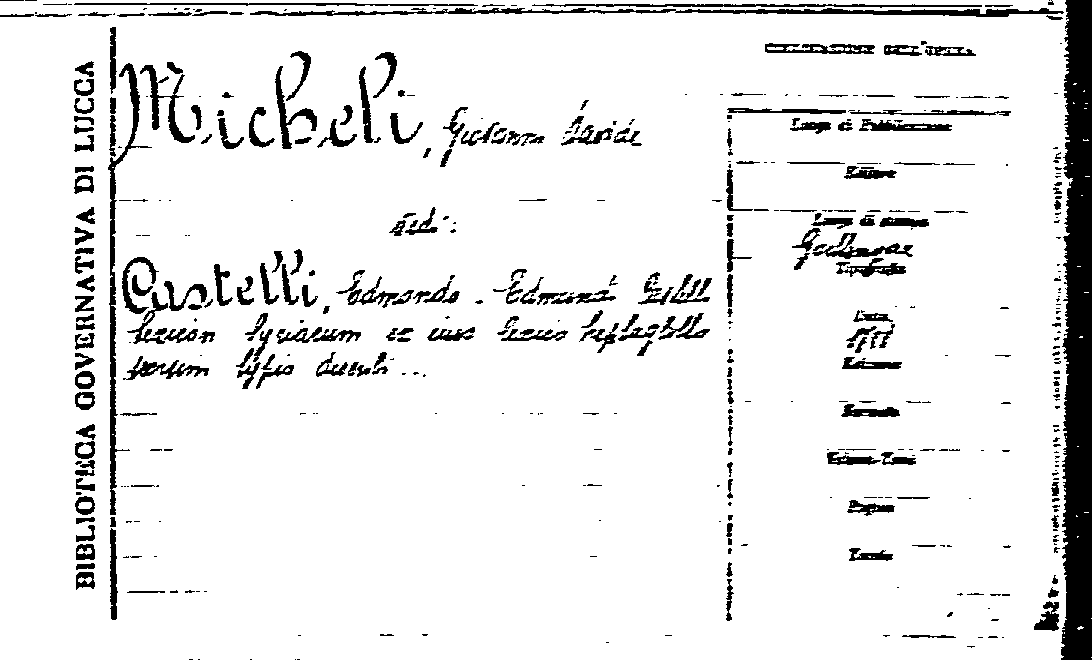 BIBLIOTECA GOVERNATIVA DI LUCCA
Micheli, Giovanni Davide
ved.:
Castelli, Edmondo - Edmundi Castelli
lexicon syriacum ex eius lexico heptaglotto
seorsim typis
Luogo di Pubblicazione
Editore
Luogo di stampa
Gottingae
Tipografia
Data
Edizione
Formato
Volume-Tomi
Pagine
Tavole